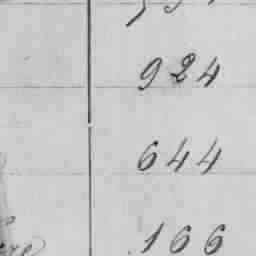 924
644
166